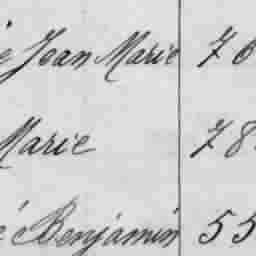 é Jean Marie 76
Marie 78
é Benjamin 55